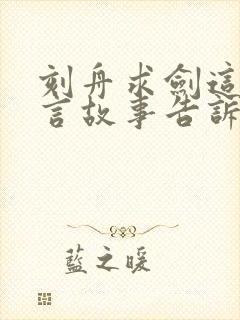 刻舟求劍這
言故事告訴
藍之暖